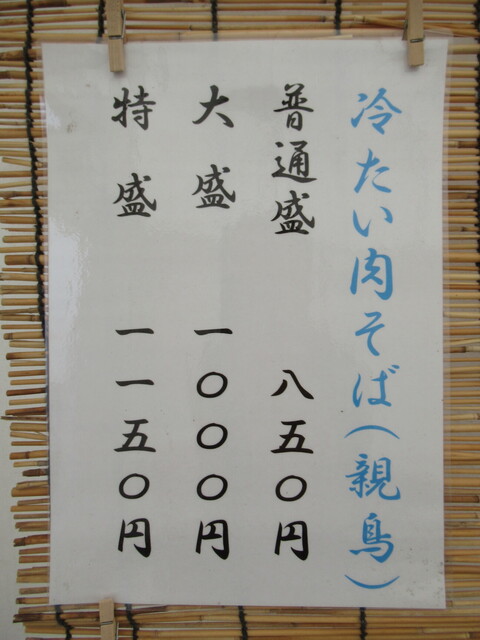 冷たい肉そば(親鳥)
普通盛 八五〇円
大盛 一〇〇〇円
特盛 一一五〇円